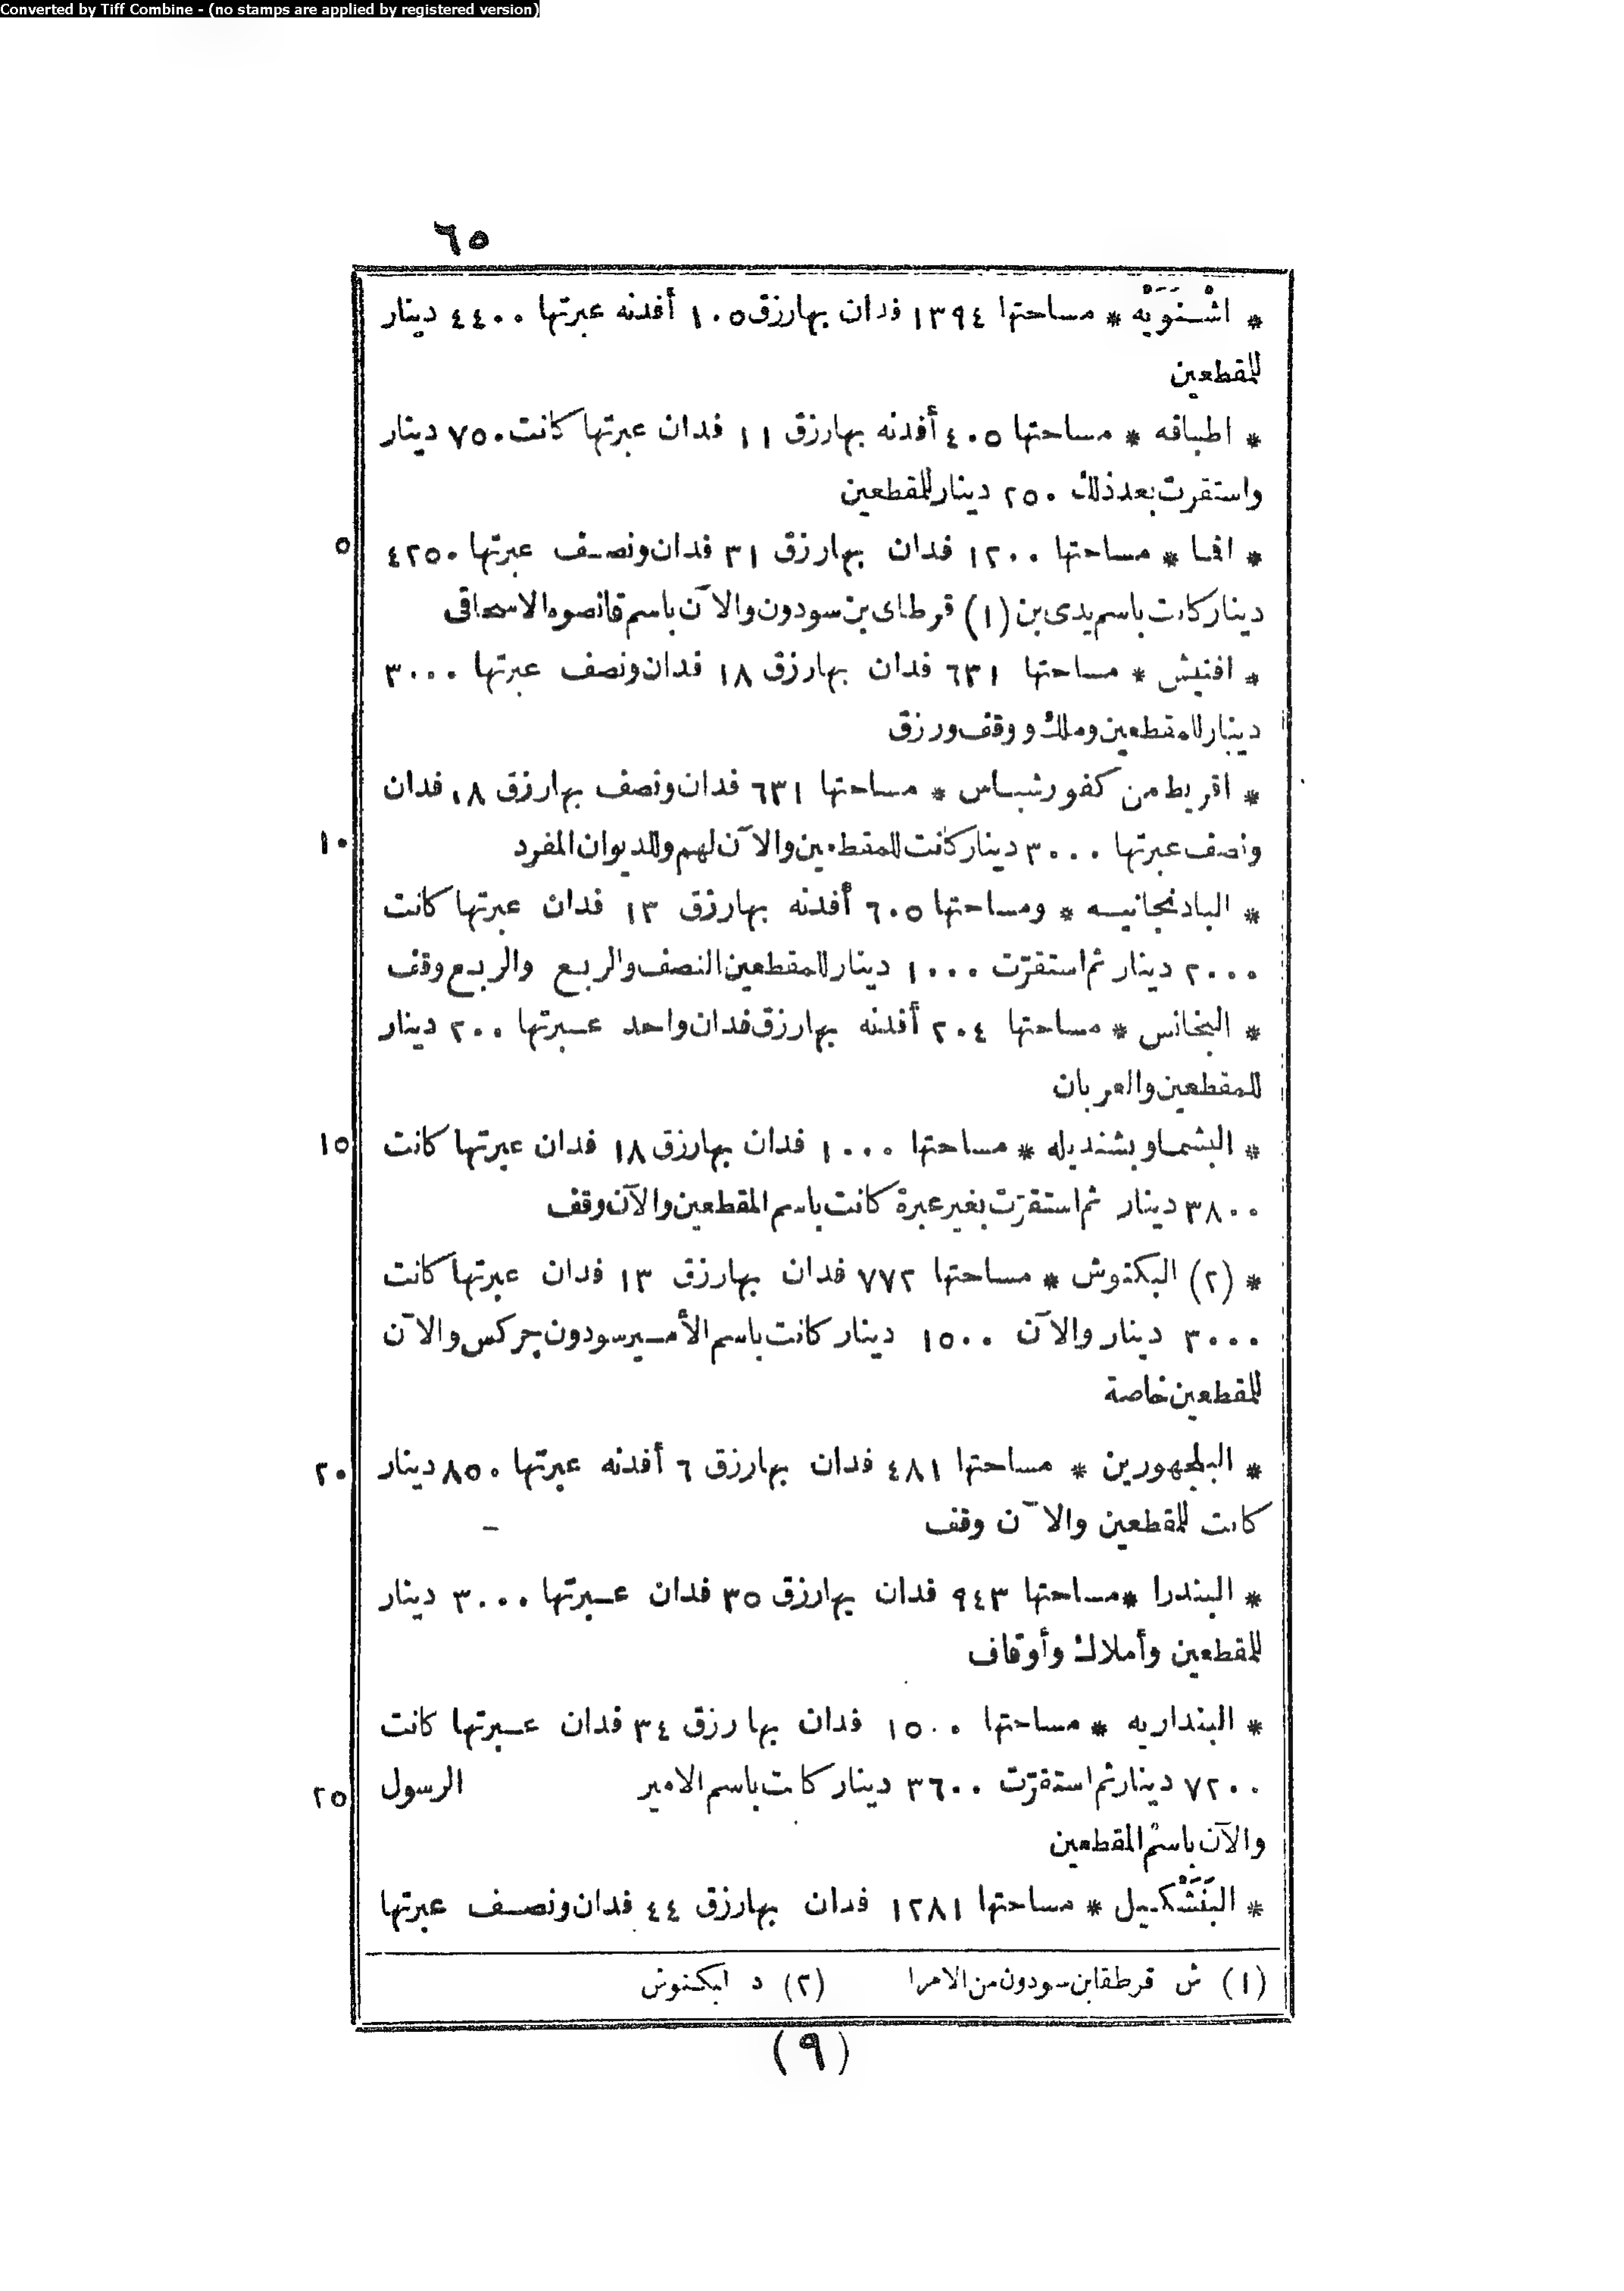 Converted by Tiff Combine - (no stamps are applied by registered version)
٦٥
* اشْنَوَيْه * مساحتها ١٣٩٤ فدان بها رزق ١٠٥ أفدنه عبرتها ٤٤٠٠ دينار
للمقطعين
* اطباقه * مساحتها ٤٠٥ أفدنه بها رزق ١١ فدان عبرتها كانت ٧٥٠ دينار
واستقرت بعد ذلك ٢٥٠ دينار للمقطعين
٥ * افسا * مساحتها ١٢٠٠ فدان بها رزق ٣١ فدان ونصف عبرتها ٤٢٥٠
دينار كانت باسم يدى بن (١) قرطاى بن سودون والآن باسم قانصوه الاسحاقى
* افنيش * مساحتها ٦٣١ فدان بها رزق ١٨ فدان ونصف عبرتها ٣٠٠٠
دينار للمقطعين وملك ووقف ورزق
* اقريط من كفور شباس * مساحتها ٦٣١ فدان ونصف بها رزق ١٨ فدان
١٠ ونصف عبرتها ٣٠٠٠ دينار كانت للمقطعين والآن لهم وللديوان المفرد
* البادنجانيه * ومساحتها ٦٠٥ أفدنه بها رزق ١٣ فدان عبرتها كانت
٢٠٠٠ دينار ثم استقرّت ١٠٠٠ دينار للمقطعين النصف والربع والربع وقف
* البخانس * مساحتها ٢٠٤ أفدنه بها رزق فدان واحد عبرتها ٢٠٠ دينار
للمقطعين والعربان
١٥ * البشما وبشنديله * مساحتها ١٠٠٠ فدان بها رزق ١٨ فدان عبرتها كانت
٣٨٠٠ دينار ثم استقرّت بغير عبرة كانت باسم المقطعين والآن وقف
* (٢) البكتوش * مساحتها ٧٧٢ فدان بها رزق ١٣ فدان عبرتها كانت
٣٠٠٠ دينار والآن ١٥٠٠ دينار كانت باسم الأمير سودون جركس والآن
للمقطعين خاصة
٢٠ * البلجهورين * مساحتها ٤٨١ فدان بها رزق ٦ أفدنه عبرتها ٨٥٠ دينار
كانت للمقطعين والآن وقف
* البندرا * مساحتها ٩٤٣ فدان بها رزق ٣٥ فدان عبرتها ٣٠٠٠ دينار
للمقطعين وأملاك وأوقاف
* البنداريه * مساحتها ١٥٠٠ فدان بها رزق ٣٤ فدان عبرتها كانت
٢٥ ٧٢٠٠ دينار ثم استقرّت ٣٦٠٠ دينار كانت باسم الامير الرسول
والآن باسم المقطعين
* البَنَشْكيل * مساحتها ١٢٨١ فدان بها رزق ٤٤ فدان ونصف عبرتها
(١) ش قرطقا بن سودون من الامرا (٢) د ابكنوش
(٩)